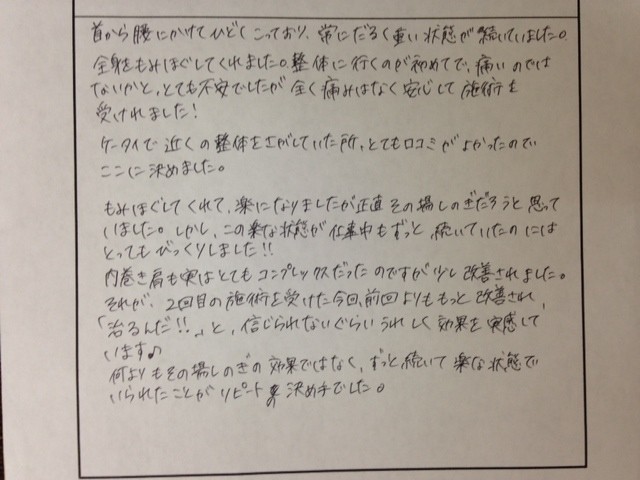 首から腰にかけてひどくこっており、常にだるく重い状態が続いていました。
全身をもみほぐしてくれました。整体に行くのが初めてで、痛いのでは
ないかと、とても不安でしたが全く痛みはなく安心して施術を
受けれました!
ケータイで近くの整体をさがしていた所、とても口コミがよかったので
ここに決めました。
もみほぐしてくれて、楽になりましたが正直その場しのぎだろうと思って
いました。しかし、この楽な状態が仕事中もずっと続いていたのには
とってもびっくりしました!!
内巻き肩も実はとてもコンプレックスだったのですが少し改善されました。
それが、2回目の施術を受けた今回、前回よりももっと改善され、
「治るんだ!!」と、信じられないぐらいうれしく効果を実感して
います♪
何よりもその場しのぎの効果ではなく、ずっと続いて楽な状態で
いられたことがリピート 決め手でした。